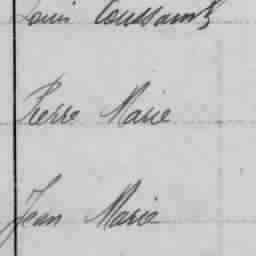 Louis Toussaint
Pierre Marie
Jean Marie